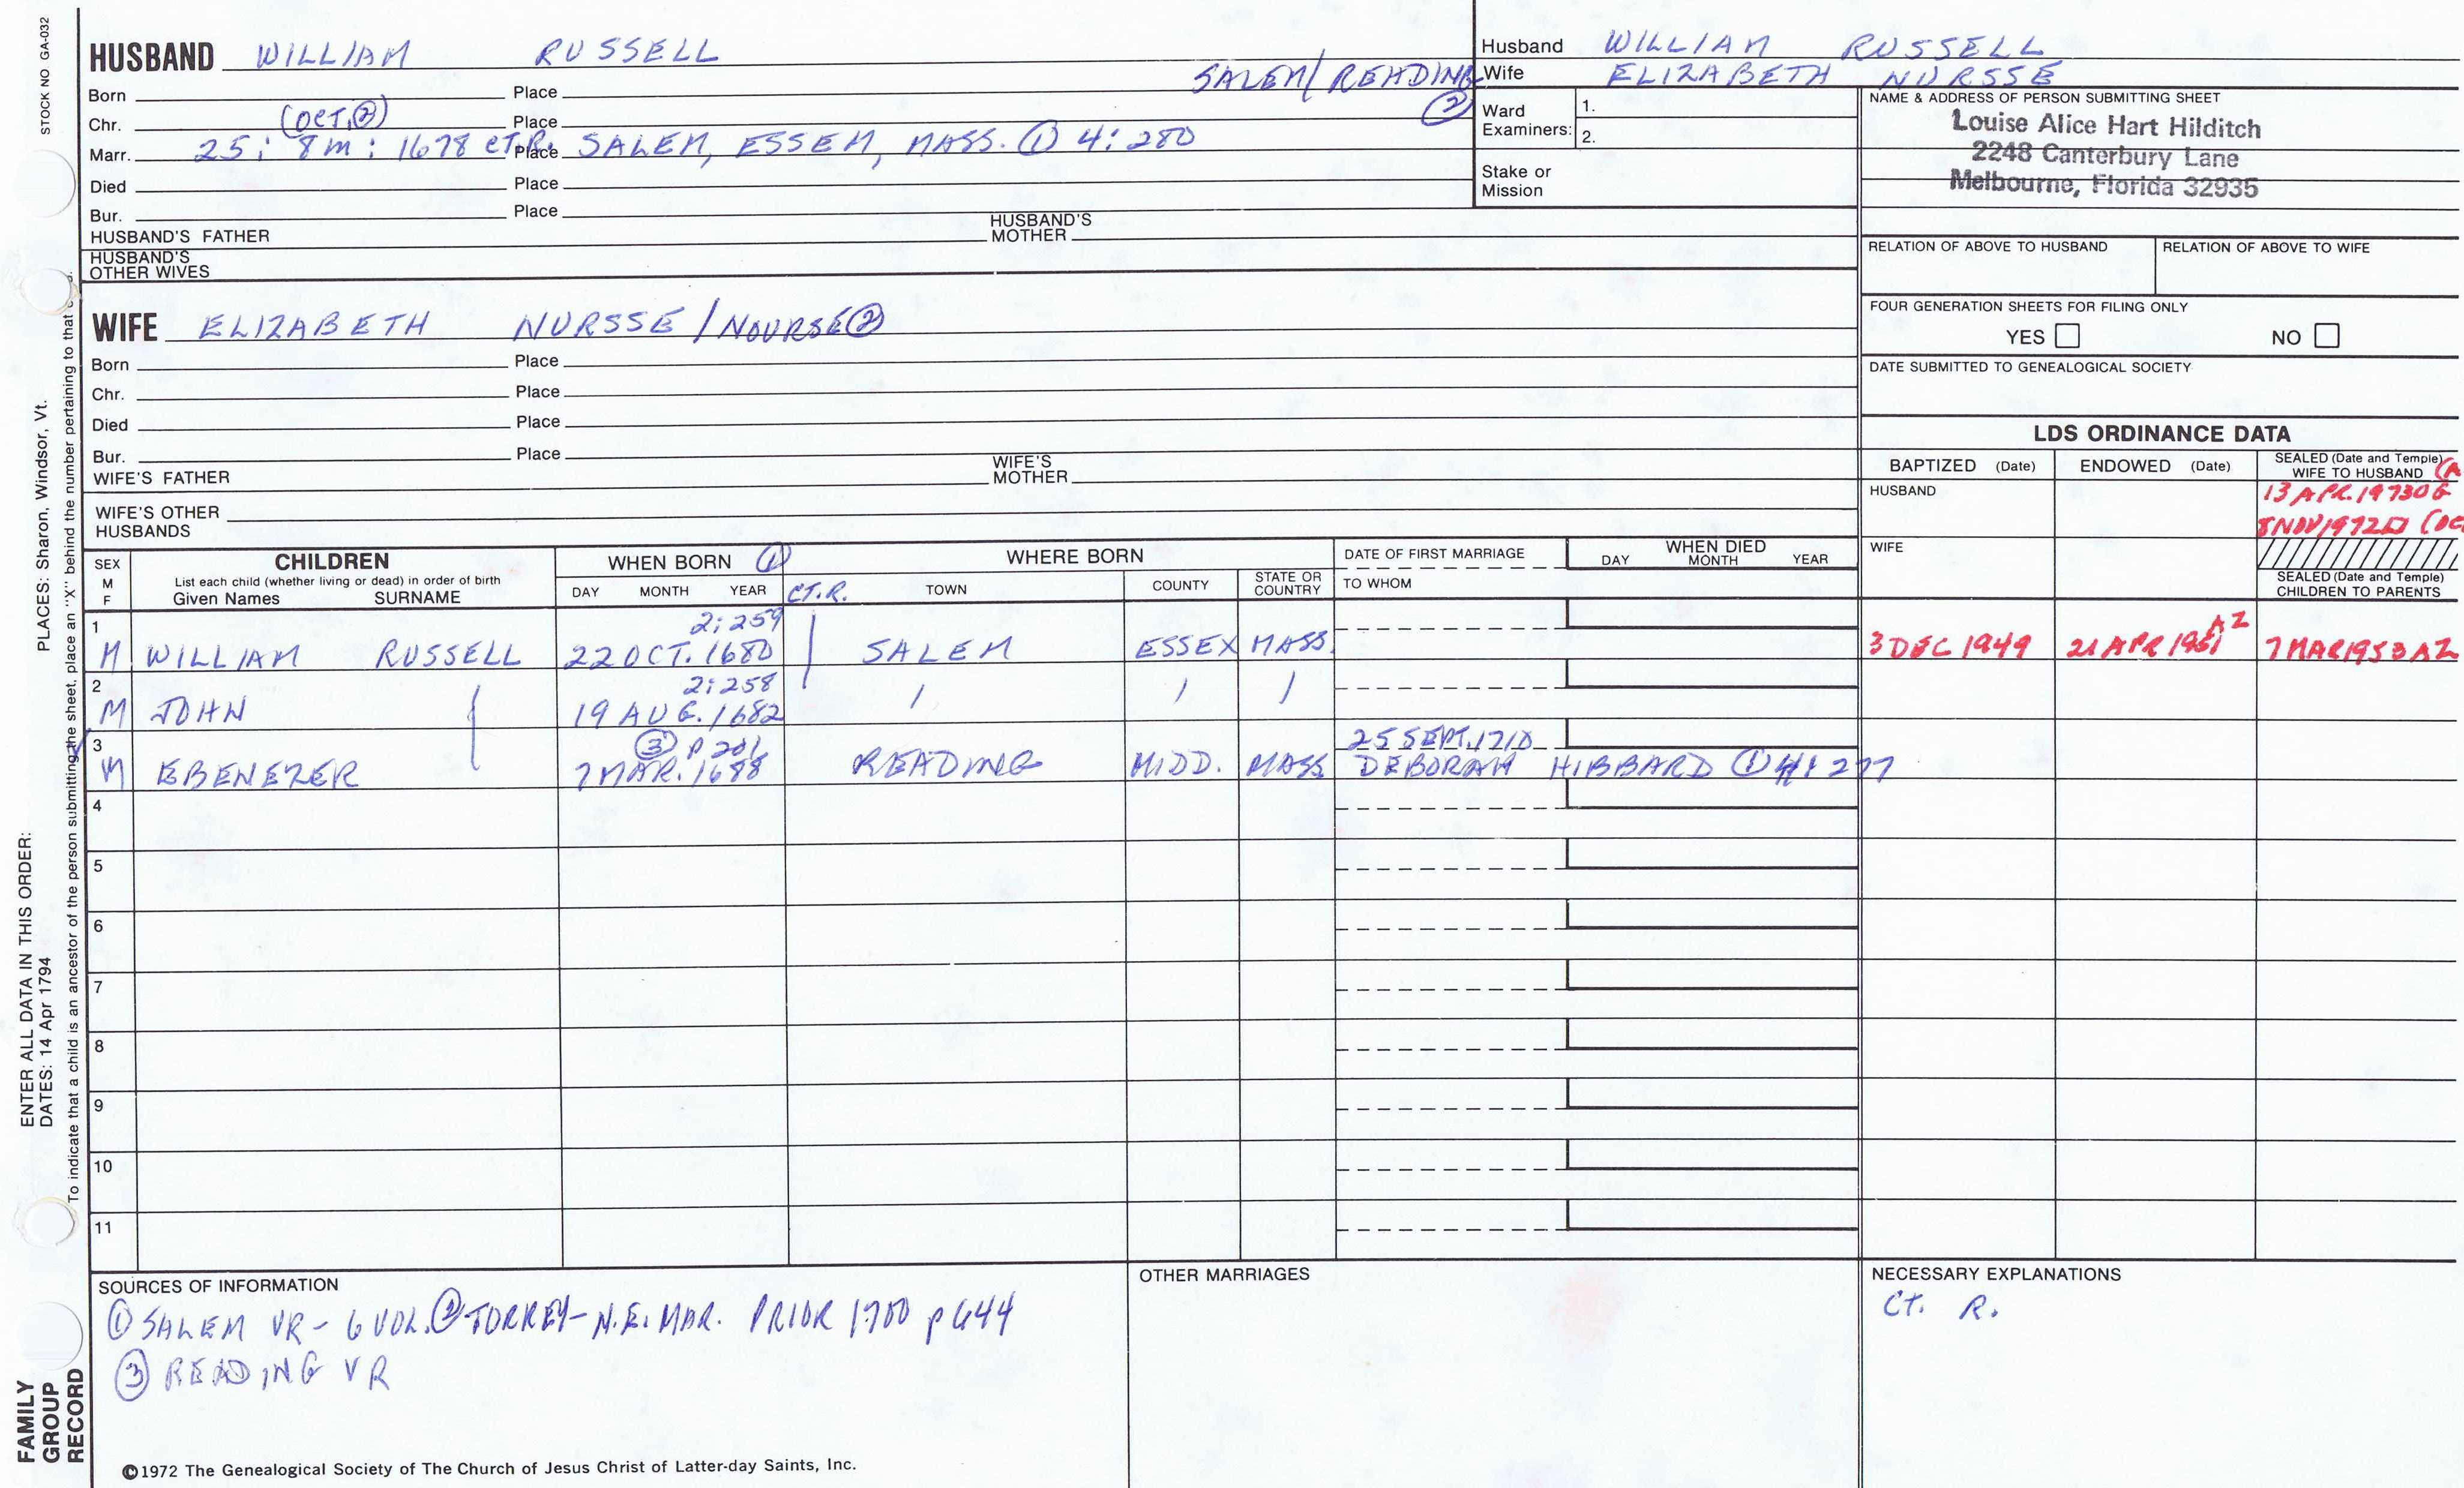 STOCK NO GA-032
HUSBAND WILLIAM RUSSELL
SALEM/READING ②
Born Place
Chr. (OCT.②) Place
Marr. 25: 8m: 1678 CT.R. Place SALEM, ESSEM, MASS. ① 4:280
Died Place
Bur. Place
HUSBAND'S FATHER HUSBAND'S MOTHER
HUSBAND'S OTHER WIVES
Husband WILLIAM RUSSELL
Wife ELIZABETH NURSSE
Ward Examiners: 1.
2.
Stake or Mission
NAME & ADDRESS OF PERSON SUBMITTING SHEET
Louise Alice Hart Hilditch
2248 Canterbury Lane
Melbourne, Florida 32935
RELATION OF ABOVE TO HUSBAND RELATION OF ABOVE TO WIFE
FOUR GENERATION SHEETS FOR FILING ONLY
YES NO
DATE SUBMITTED TO GENEALOGICAL SOCIETY
WIFE ELIZABETH NURSSE/NOURSE②
Born Place
Chr. Place
Died Place
Bur. Place
WIFE'S FATHER WIFE'S MOTHER
WIFE'S OTHER HUSBANDS
LDS ORDINANCE DATA
BAPTIZED (Date) ENDOWED (Date) SEALED (Date and Temple) WIFE TO HUSBAND
HUSBAND 13 APR. 1973OG
8NOV1972
WIFE
SEALED (Date and Temple)
CHILDREN TO PARENTS
SEX M F
CHILDREN
List each child (whether living or dead) in order of birth
Given Names SURNAME
WHEN BORN ①
DAY MONTH YEAR CT.R.
WHERE BORN
TOWN COUNTY STATE OR COUNTRY
DATE OF FIRST MARRIAGE
TO WHOM
WHEN DIED
DAY MONTH YEAR
1 2:259
M WILLIAM RUSSELL 22 OCT. 1680 SALEM ESSEX MASS. 3 DEC 1949 21 APR 1951 AZ 7 MAR 1953 AZ
2 2:258
M JOHN 19 AUG. 1682
3 ③ p 206 25 SEPT. 1710
M EBENEZER 7 MAR. 1688 READING MIDD. MASS DEBORAH HIBBARD ① 4: 277
4
5
6
7
8
9
10
11
SOURCES OF INFORMATION
① SALEM VR - 6 VOL. ② TORREY - N.E. MAR. PRIOR 1700 p 644
③ READING VR
OTHER MARRIAGES
NECESSARY EXPLANATIONS
CT. R.
©1972 The Genealogical Society of The Church of Jesus Christ of Latter-day Saints, Inc.
FAMILY
GROUP
RECORD
ENTER ALL DATA IN THIS ORDER:
DATES: 14 Apr 1794
PLACES: Sharon, Windsor, Vt.
To indicate that a child is an ancestor of the person submitting the sheet, place an "X" behind the number pertaining to that